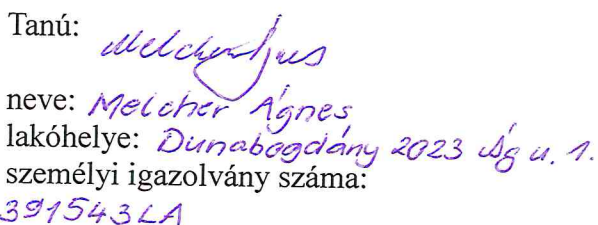 Tanú:
neve: Melcher Ágnes
lakóhelye: Dunabogdány 2023 Ág u. 1.
személyi igazolvány száma:
391543LA